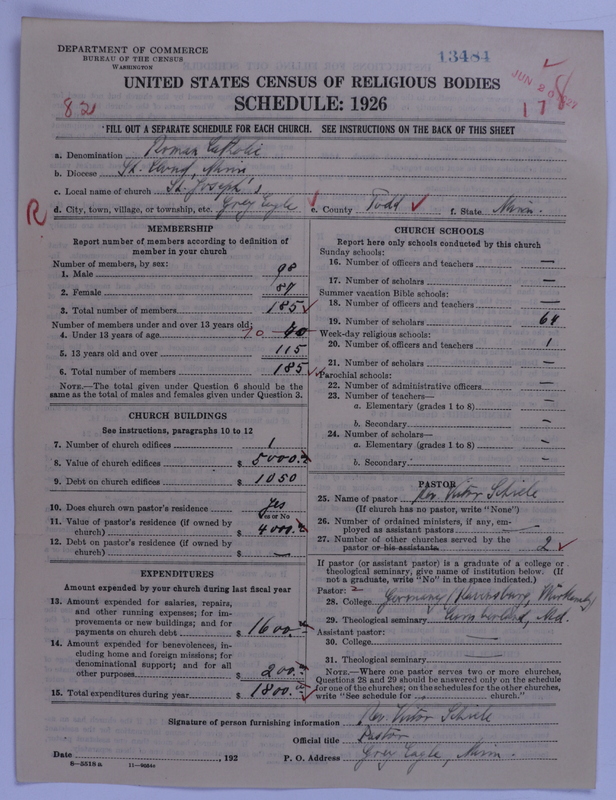 DEPARTMENT OF COMMERCE
BUREAU OF THE CENSUS
WASHINGTON
13484
JUN 20
178
82
UNITED STATES CENSUS OF RELIGIOUS BODIES
SCHEDULE: 1926
FILL OUT A SEPARATE SCHEDULE FOR EACH CHURCH. SEE INSTRUCTIONS ON THE BACK OF THIS SHEET
a. Denomination Roman Catholic
b. Diocese St. Cloud, Minn
c. Local name of church St. Joseph's
R
d. City, town, village, or township, etc. Grey Eagle e. County Todd f. State Minn.
MEMBERSHIP
Report number of members according to definition of
member in your church
Number of members, by sex:
1. Male 98
2. Female 87
3. Total number of members 185
Number of members under and over 13 years old:
4. Under 13 years of age 70
5. 13 years old and over 115
6. Total number of members 185
NOTE.—The total given under Question 6 should be the
same as the total of males and females given under Question 3.
CHURCH BUILDINGS
See instructions, paragraphs 10 to 12
7. Number of church edifices 1
8. Value of church edifices $ 5000.
9. Debt on church edifices $ 1050
10. Does church own pastor's residence Yes
Yes or No
11. Value of pastor's residence (if owned by
church) $ 4000.
12. Debt on pastor's residence (if owned by
church) $ —
EXPENDITURES
Amount expended by your church during last fiscal year
13. Amount expended for salaries, repairs,
and other running expenses; for im-
provements or new buildings; and for
payments on church debt $ 1600
14. Amount expended for benevolences, in-
cluding home and foreign missions; for
denominational support; and for all
other purposes $ 200.
15. Total expenditures during year $ 1800.
CHURCH SCHOOLS
Report here only schools conducted by this church
Sunday schools:
16. Number of officers and teachers —
17. Number of scholars —
Summer vacation Bible schools:
18. Number of officers and teachers —
19. Number of scholars 64
Week-day religious schools:
20. Number of officers and teachers 1
21. Number of scholars —
Parochial schools:
22. Number of administrative officers —
23. Number of teachers—
a. Elementary (grades 1 to 8) —
b. Secondary —
24. Number of scholars—
a. Elementary (grades 1 to 8) —
b. Secondary —
PASTOR
25. Name of pastor Rev. Victor Schiele
(If church has no pastor, write "None")
26. Number of ordained ministers, if any, em-
ployed as assistant pastors —
27. Number of other churches served by the
pastor or his assistants 2
If pastor (or assistant pastor) is a graduate of a college or
theological seminary, give name of institution below. (If
not a graduate, write "No" in the space indicated.)
Pastor:
28. College Germany
29. Theological seminary Cumberland, Md.
Assistant pastor:
30. College —
31. Theological seminary —
NOTE.—Where one pastor serves two or more churches,
Questions 28 and 29 should be answered only on the schedule
for one of the churches; on the schedules for the other churches,
write "See schedule for ........ church."
Signature of person furnishing information Rev. Victor Schiele
Official title Pastor
Date , 192 P. O. Address Grey Eagle, Minn.
8—5518 a 11—9554